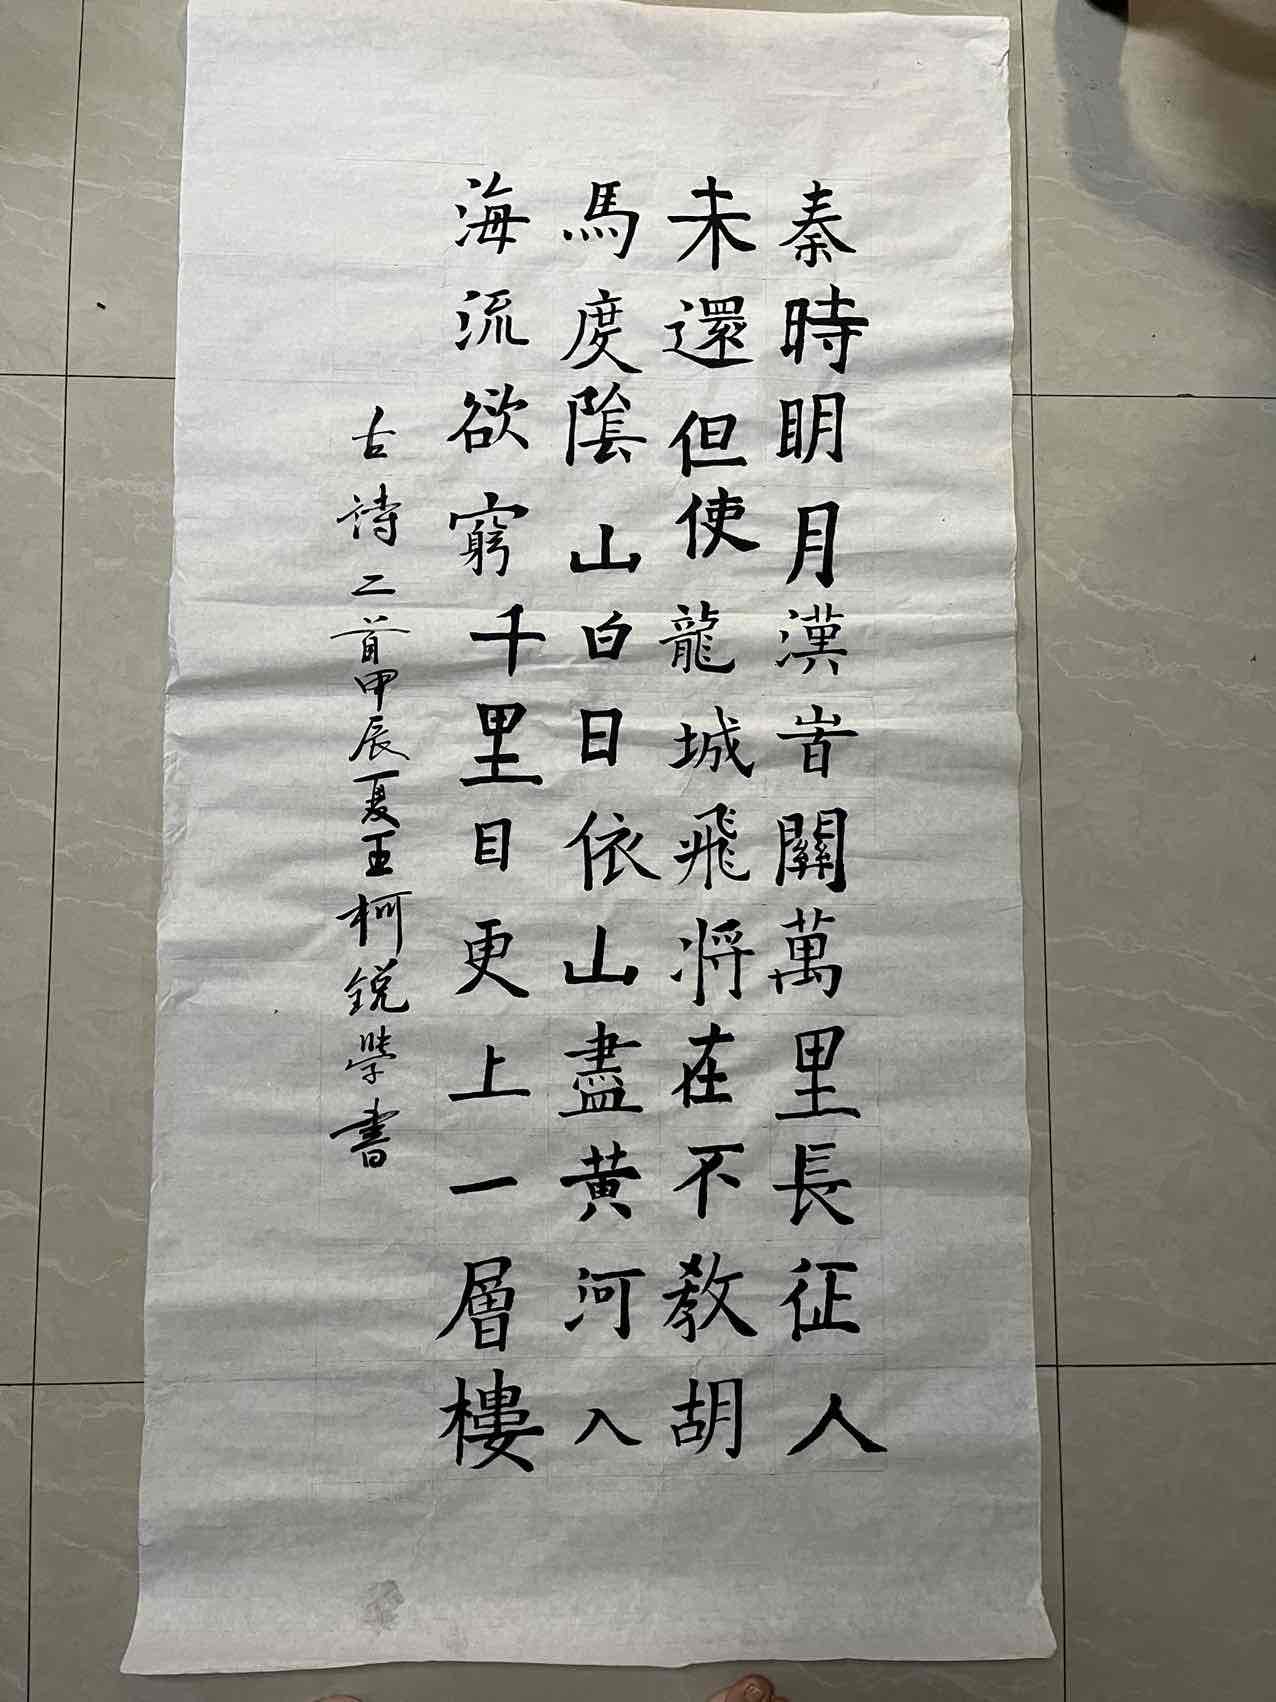 秦時明月漢時關萬里長征人
未還但使龍城飛將在不教胡
馬度陰山白日依山盡黄河入
海流欲窮千里目更上一層樓
古詩二首甲辰夏王柯锐學書